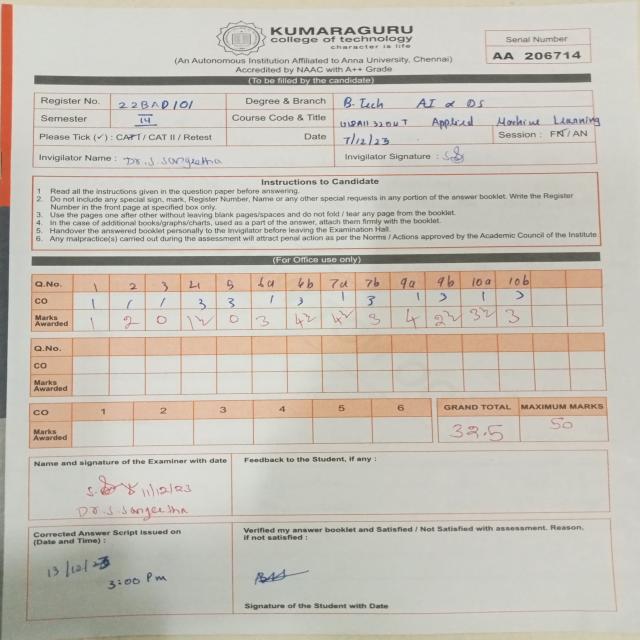 KUMARAGURU
college of technology
character is life
Serial Number
AA 206714
(An Autonomous Institution Affiliated to Anna University, Chennai)
Accredited by NAAC with A++ Grade
(To be filled by the candidate)
Register No. 22BAD101 Degree & Branch B.Tech AI & DS
Semester III Course Code & Title Applied Machine Learning
Please Tick (✓) : CAT I / CAT II / Retest Date 7/12/23 Session : FN / AN
Invigilator Name : Dr.S.Sangeetha Invigilator Signature :
Instructions to Candidate
1 Read all the instructions given in the question paper before answering.
2. Do not include any special sign, mark, Register Number, Name or any other special requests in any portion of the answer booklet. Write the Register
Number in the front page at specified box only.
3. Use the pages one after other without leaving blank pages/spaces and do not fold / tear any page from the booklet.
4. In the case of additional books/graphs/charts, used as a part of the answer, attach them firmly with the booklet.
5. Handover the answered booklet personally to the Invigilator before leaving the Examination Hall.
6. Any malpractice(s) carried out during the assessment will attract penal action as per the Norms / Actions approved by the Academic Council of the Institute
(For Office use only)
Q.No. 1 2 3 4 5 6a 6b 7a 7b 9a 9b 10a 10b
CO 1 1 1 3 3 1 3 1 3 1 3 1 3
Marks Awarded 1 2 0 1½ 0 3 4½ 4½ 3 4 2½ 3½ 3
Q.No.
CO
Marks Awarded
CO 1 2 3 4 5 6 GRAND TOTAL MAXIMUM MARKS
Marks Awarded 32.5 50
Name and signature of the Examiner with date
11/12/23
Dr.S.Sangeetha
Feedback to the Student, if any :
Corrected Answer Script Issued on
(Date and Time) :
13/12/23
3:00 Pm
Verified my answer booklet and Satisfied / Not Satisfied with assessment. Reason,
if not satisfied :
Signature of the Student with Date